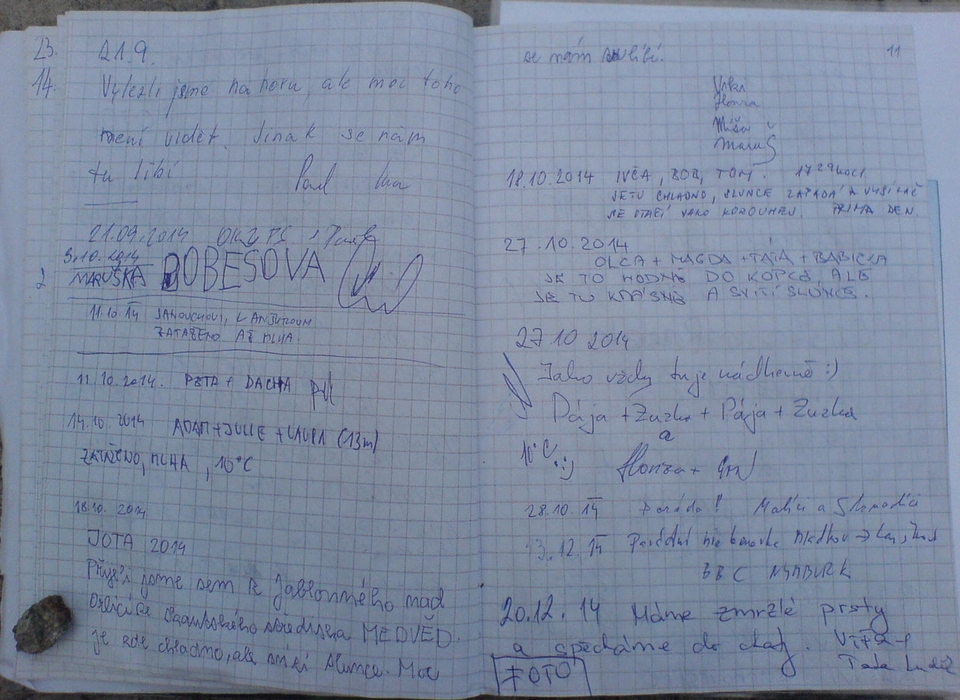 23.
14.
21.9.
Vylezli jsme na horu, ale moc toho
není vidět. Jinak se nám
tu líbí
Pavel
21.09.2014
5.10.2014
MARUŠKA DOBEŠOVÁ
2
11.10.14 JANOUCHOVI, LANŠKROUN
ZATAŽENO AŽ MLHA.
11.10.2014. PÉTA + DACHA
14.10.2014 ADAM + JULIE + LAURA (13m)
ZATAŽENO, MLHA, 10°C
18.10.2014
JOTA 2014
Přijeli jsme sem z Jablonného nad
Orlicí ze skautského střediska MEDVĚD.
je zde chladno, ale svítí slunce. Moc
11
se nám líbí.
Míša
18.10.2014 IVČA, BOB, TOM.
JE TU CHLADNO, SLUNCE ZAPADÁ A VYSÍLAČ
SE STAČÍ JAKO KOROUHEV. PRIMA DEN.
27.10.2014
OLČA + MAGDA + TÁTA + BABIČKA
JE TO HODNĚ DO KOPCE, ALE
JE TU KRÁSNĚ A SVÍTÍ SLUNCE.
27 10 2014
Jako vždy tu je nádherně :)
Pája + Zuzka + Pája + Zuzka
a
10°C :)
Honza +
28.10 14 Paráda! a
13.12.14
BBC NYMBURK
20.12.14 Máme zmrzlé prsty
a spěcháme do chaty.
Táta
FOTO